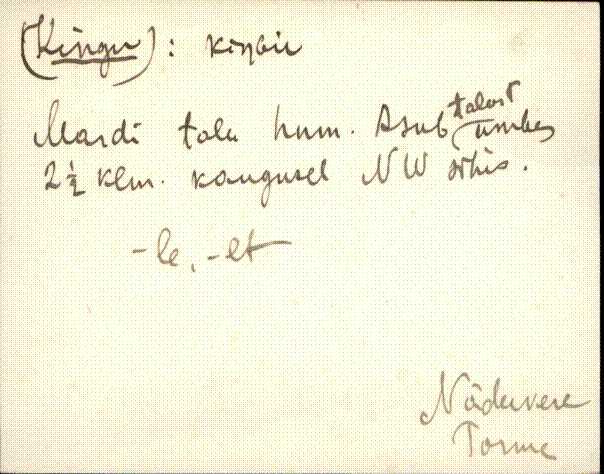 (Kingu): kiŋɢu
Mardi talu hum. Asub talost umbes
2½ klm. kaugusel NW sihis.
-le, -lt
Nõduvere
Torma